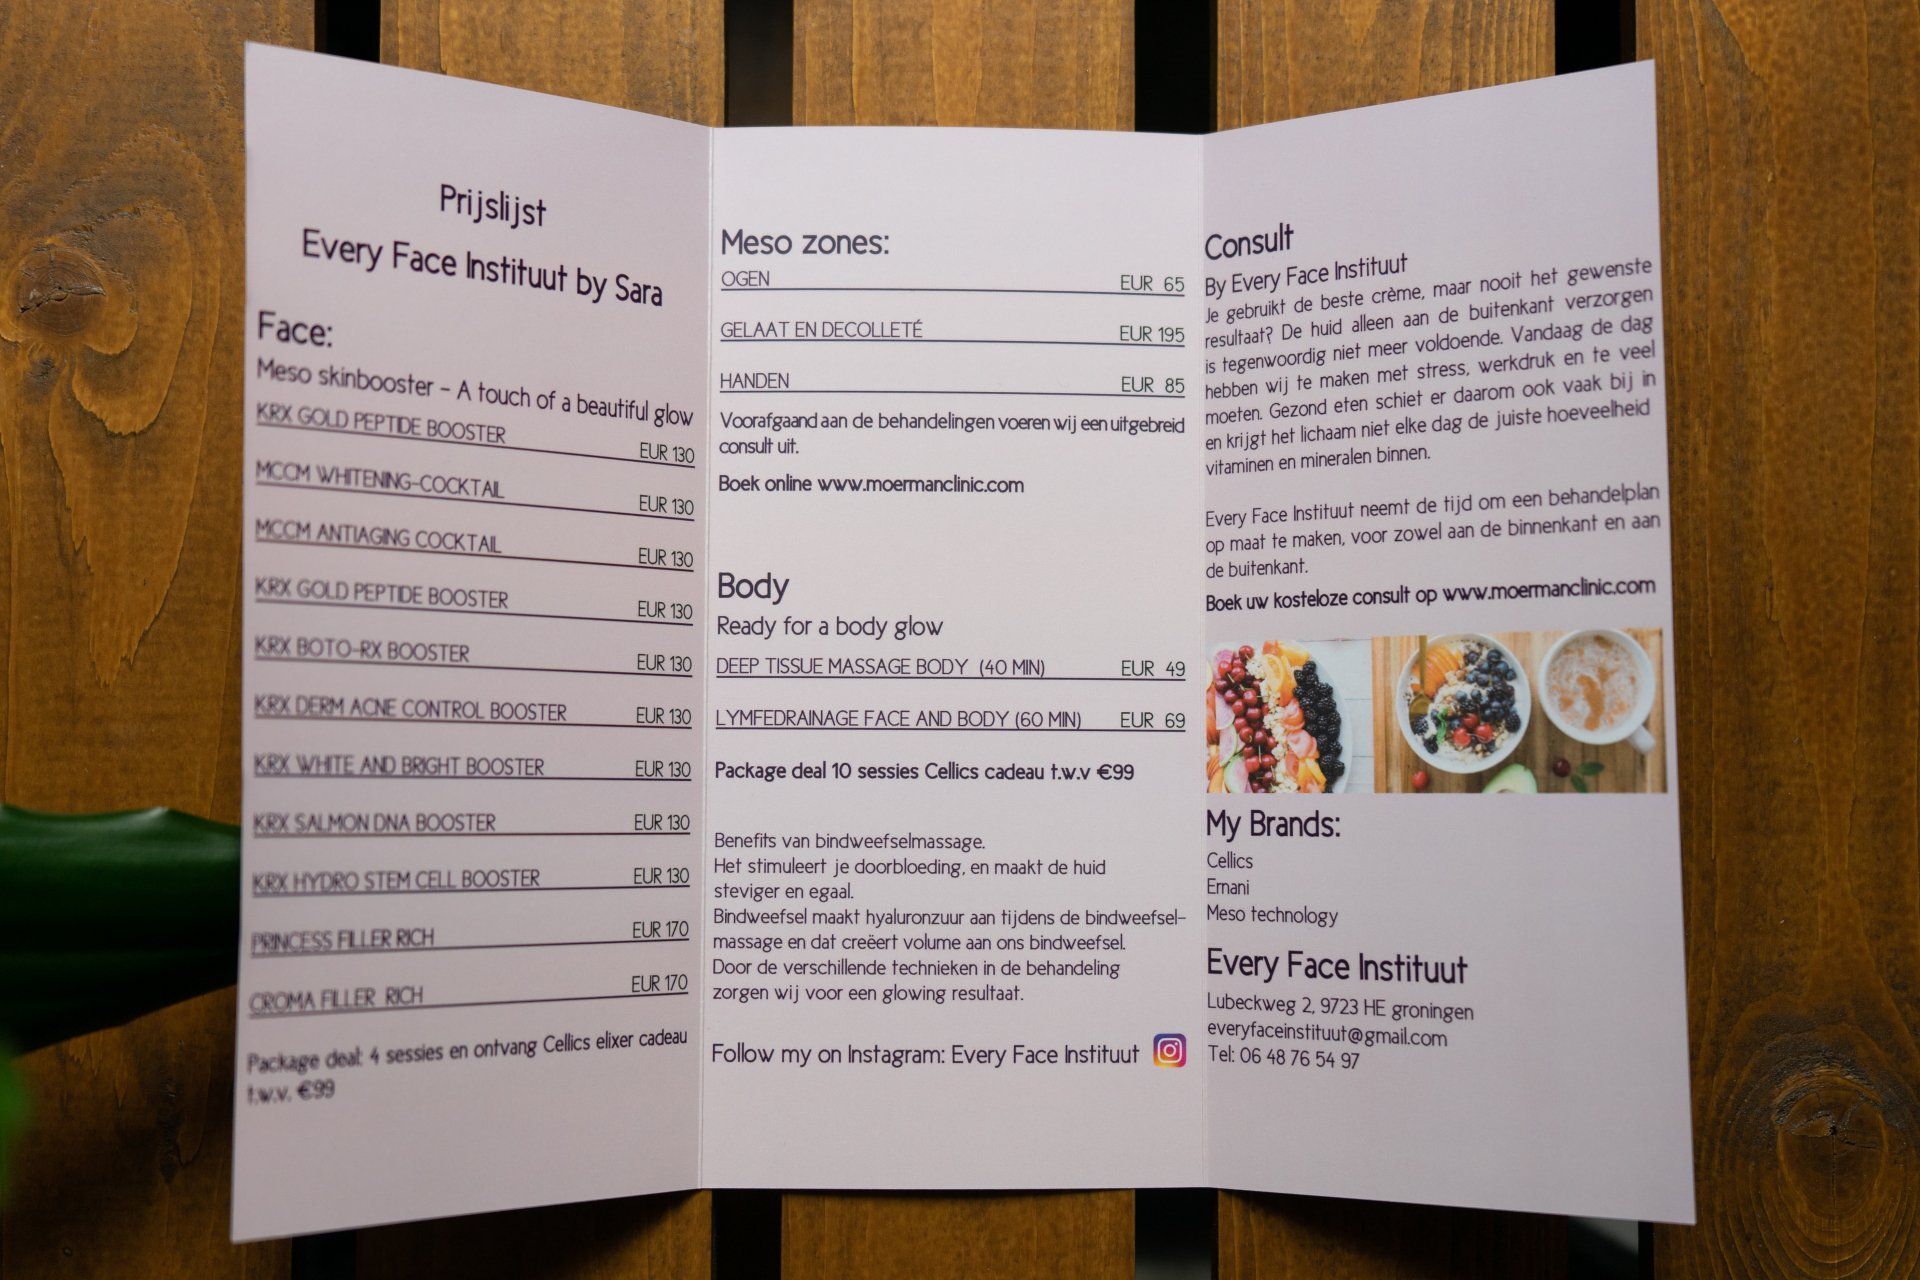 Prijslijst
Every Face Instituut by Sara
Face:
Meso skinbooster - A touch of a beautiful glow
KRX GOLD PEPTIDE BOOSTER EUR 130
MCCM WHITENING-COCKTAIL EUR 130
MCCM ANTIAGING COCKTAIL EUR 130
KRX GOLD PEPTIDE BOOSTER EUR 130
KRX BOTO-RX BOOSTER EUR 130
KRX DERM ACNE CONTROL BOOSTER EUR 130
KRX WHITE AND BRIGHT BOOSTER EUR 130
KRX SALMON DNA BOOSTER EUR 130
KRX HYDRO STEM CELL BOOSTER EUR 130
PRINCESS FILLER RICH EUR 170
CROMA FILLER RICH EUR 170
Package deal: 4 sessies en ontvang Cellics elixer cadeau
t.w.v. €99
Meso zones:
OGEN EUR 65
GELAAT EN DECOLLETÉ EUR 195
HANDEN EUR 85
Voorafgaand aan de behandelingen voeren wij een uitgebreid
consult uit.
Boek online www.moermanclinic.com
Body
Ready for a body glow
DEEP TISSUE MASSAGE BODY (40 MIN) EUR 49
LYMFEDRAINAGE FACE AND BODY (60 MIN) EUR 69
Package deal 10 sessies Cellics cadeau t.w.v €99
Benefits van bindweefselmassage.
Het stimuleert je doorbloeding, en maakt de huid
steviger en egaal.
Bindweefsel maakt hyaluronzuur aan tijdens de bindweefsel-
massage en dat creëert volume aan ons bindweefsel.
Door de verschillende technieken in de behandeling
zorgen wij voor een glowing resultaat.
Follow my on Instagram: Every Face Instituut
Consult
By Every Face Instituut
Je gebruikt de beste crème, maar nooit het gewenste
resultaat? De huid alleen aan de buitenkant verzorgen
is tegenwoordig niet meer voldoende. Vandaag de dag
hebben wij te maken met stress, werkdruk en te veel
moeten. Gezond eten schiet er daarom ook vaak bij in
en krijgt het lichaam niet elke dag de juiste hoeveelheid
vitaminen en mineralen binnen.
Every Face Instituut neemt de tijd om een behandelplan
op maat te maken, voor zowel aan de binnenkant en aan
de buitenkant.
Boek uw kosteloze consult op www.moermanclinic.com
My Brands:
Cellics
Ernani
Meso technology
Every Face Instituut
Lubeckweg 2, 9723 HE groningen
everyfaceinstituut@gmail.com
Tel: 06 48 76 54 97